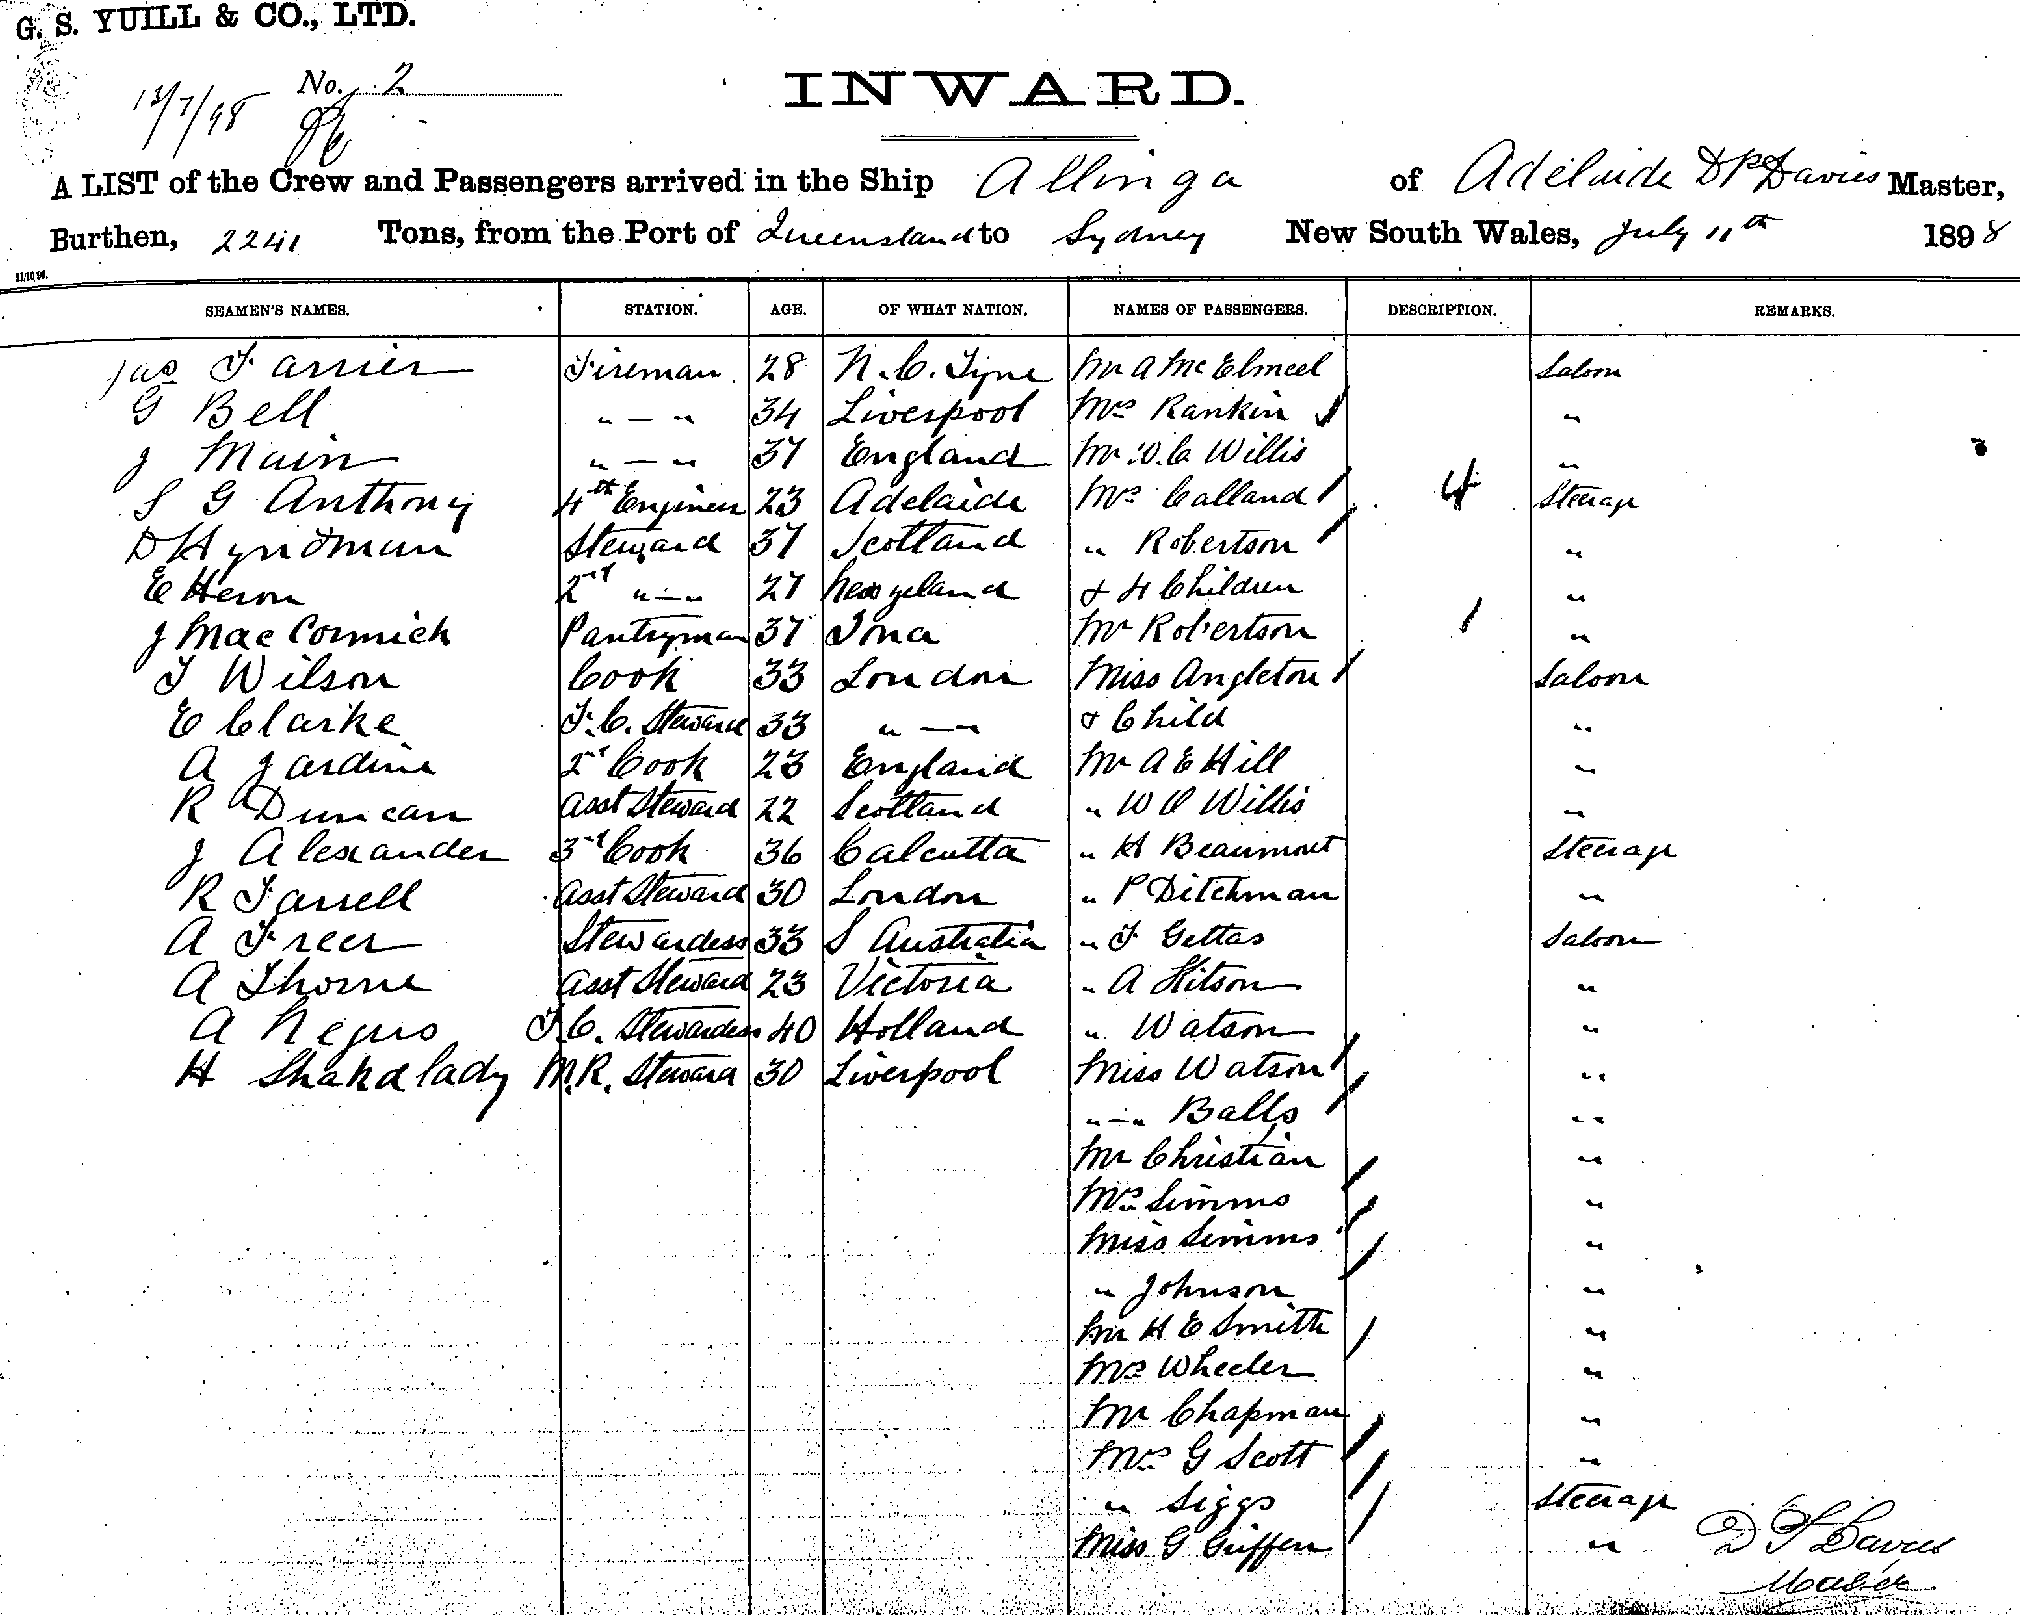 G. S. YUILL & CO., LTD.
13/7/98 No. 2
INWARD.
A LIST of the Crew and Passengers arrived in the Ship Allinga of Adelaide Davies Master,
Burthen, 2241 Tons, from the Port of Queensland to Sydney New South Wales, July 11th 1898
11/10 96.
SEAMEN'S NAMES. STATION. AGE. OF WHAT NATION. NAMES OF PASSENGERS. DESCRIPTION. REMARKS.
Jas Farrier Fireman 28 N. C. Tyne Mr A McElmeel Saloon
G Bell " — " 34 Liverpool Mrs Rankin "
J Main " — " 37 England Mr W. C. Willis "
S G Anthony 4th Engineer 23 Adelaide Mrs Calland 4 Steerage
D Hyndman Steward 37 Scotland " Robertson "
E Heron 2nd " — " 27 New Zeland & 4 Children "
J MacCormick Pantryman 37 Iona Mr Robertson "
T Wilson Cook 33 London Miss Angleton Saloon
E Clarke F. C. Steward 33 " — & Child "
A Jardine 2nd Cook 23 England Mr A E Hill "
R Duncan Asst Steward 22 Scotland " W O Willis "
J Alexander 3rd Cook 36 Calcutta " H Beaumont Steerage
R Farrell Asst Steward 30 London " P Ditchman "
A Freer Stewardess 33 S Australia " F Gettas Saloon
A Thorne Asst Steward 23 Victoria " A Kitson "
A Negus F. C. Stewardess 40 Holland " Watson "
H Shakelady M. R. Steward 30 Liverpool Miss Watson "
" — " Balls "
Mr Christian "
Mrs Simms "
Miss Simms "
" Johnson "
Mr H E Smith "
Mrs Wheeler "
Mr Chapman "
Mrs G Scott "
" Siggs Steerage
Miss G Griffen "
D P Davies
Master